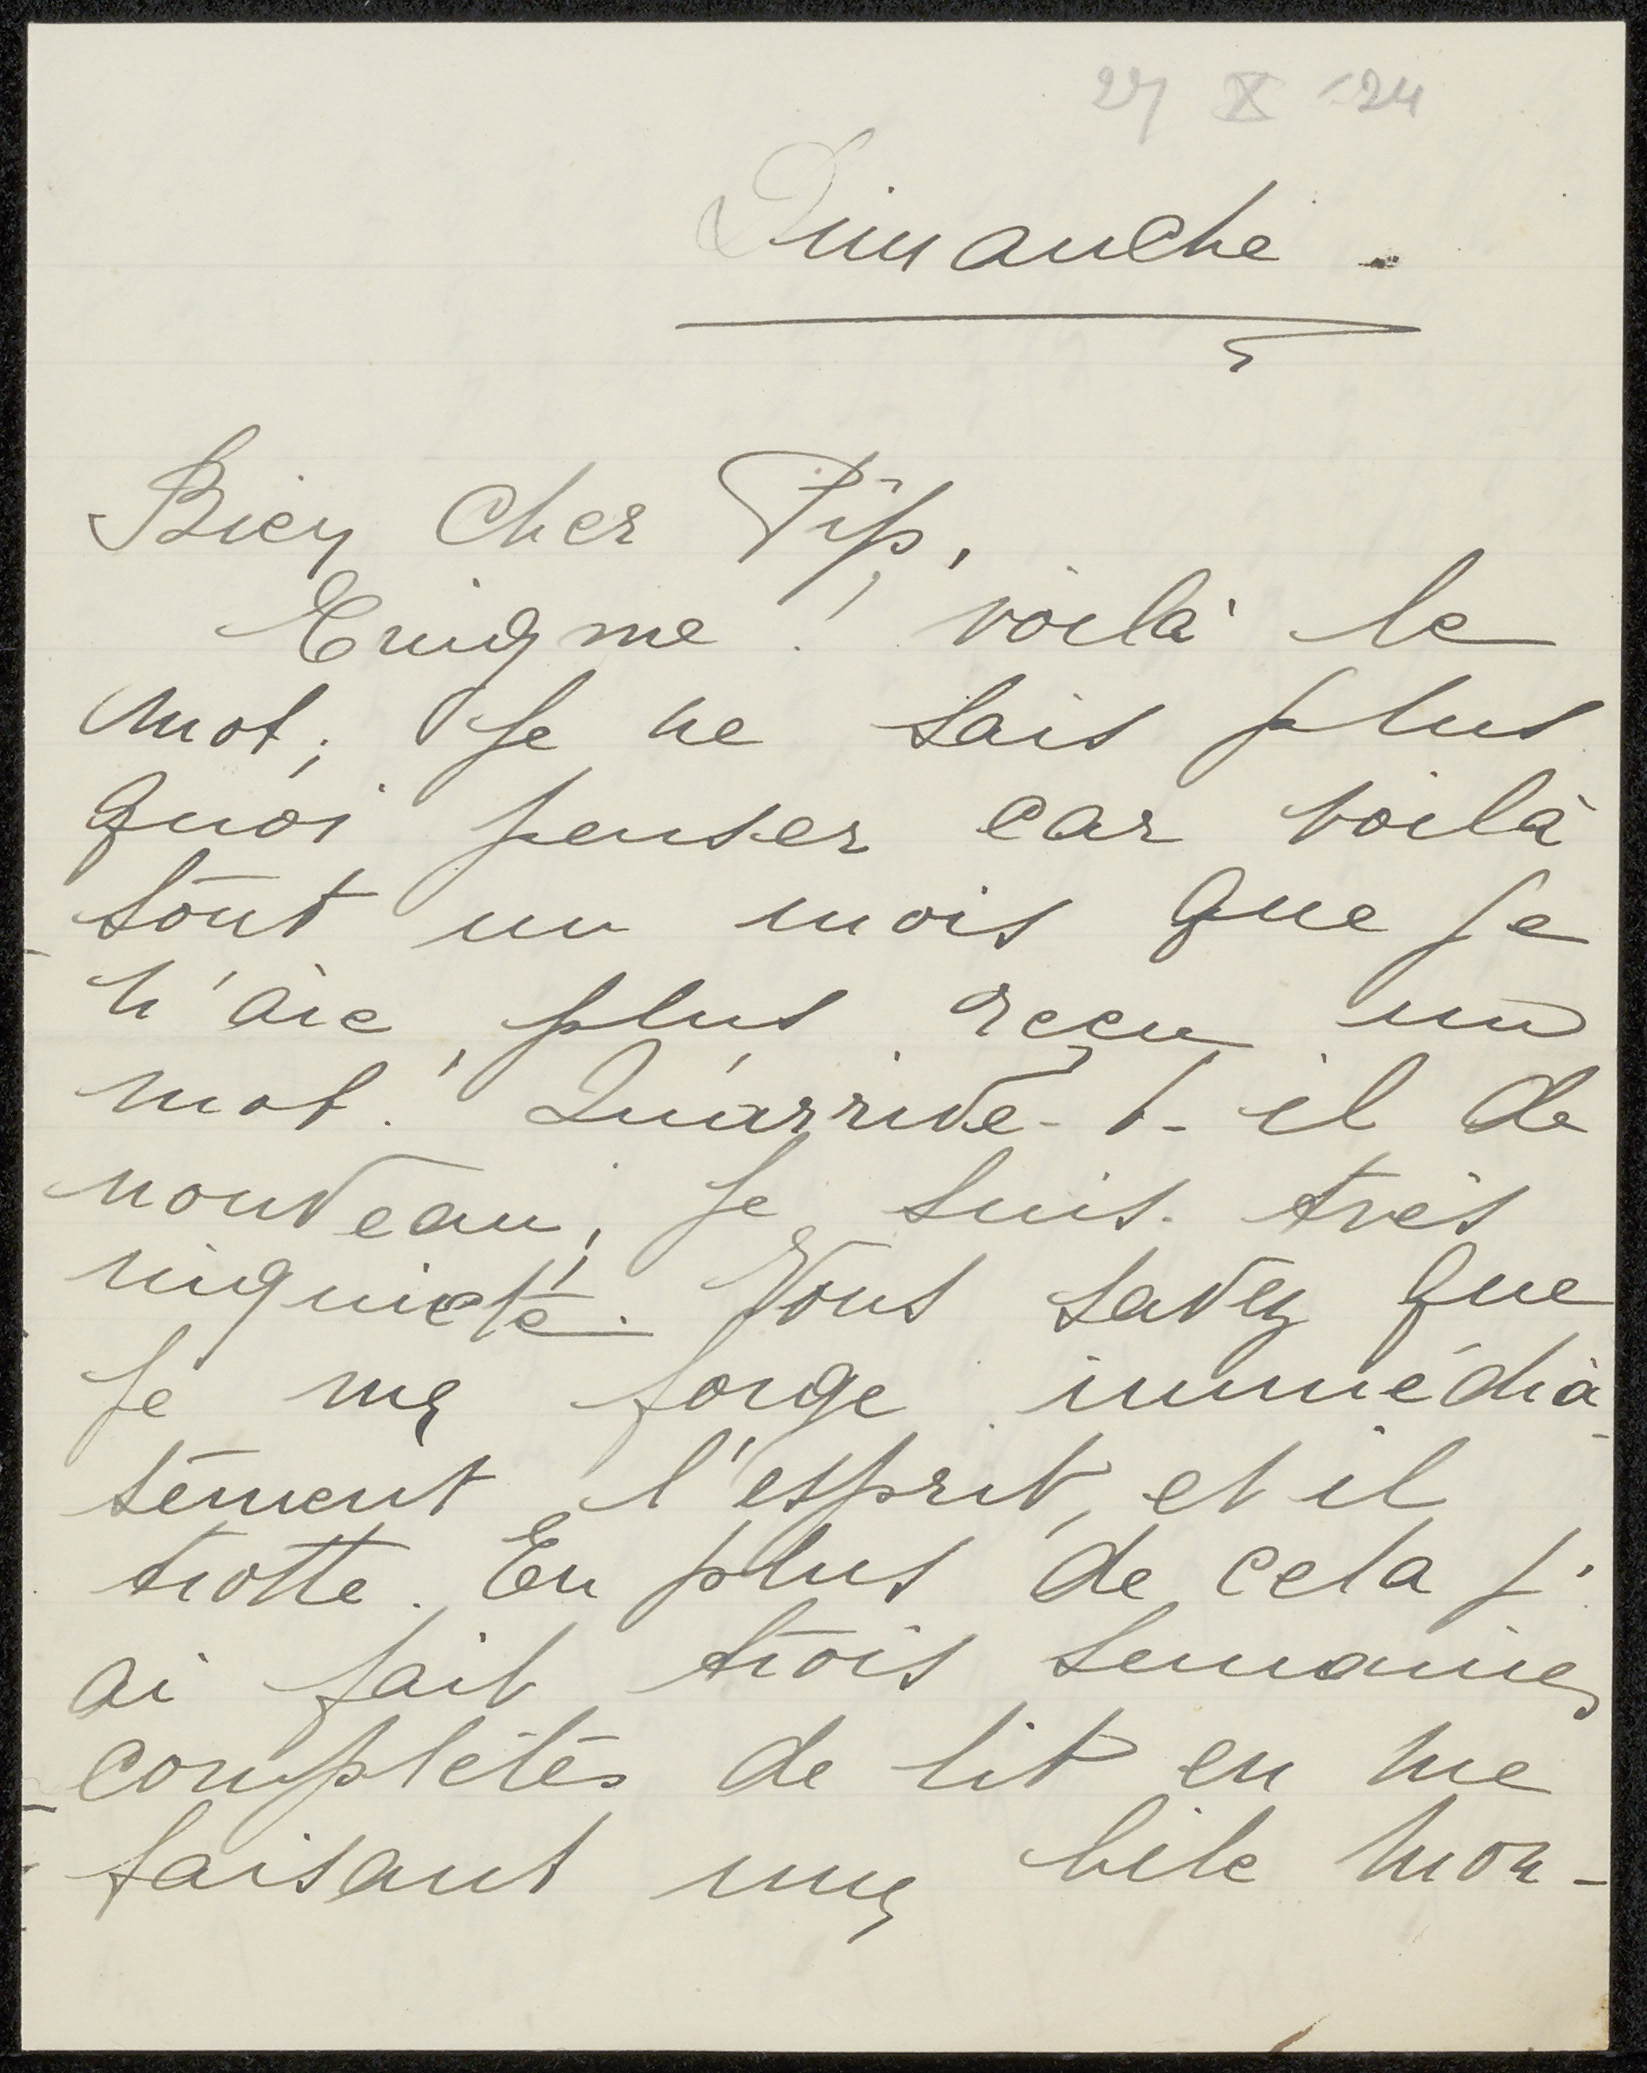 27 X '24
Dimanche.
Bien cher Pip,
Enigme! voilà le
mot; je ne sais plus
quoi penser car voilà
tout un mois que je
n'aie plus reçu un
mot! Qu'arrive-t-il de
nouveau, je suis très
inquiète. Vous savez que
je me forge immédia-
tement l'esprit, et il
trotte. En plus de cela j'
ai fait trois semaines
complètes de lit en me
faisant une bile mon-